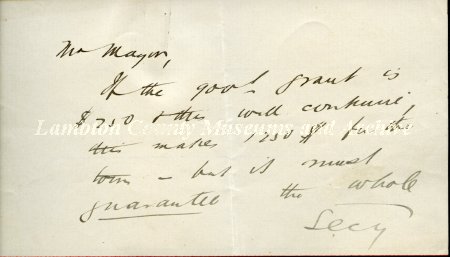 Mr Mayor,
If the govt grant is
$750 & this will continue,
this makes 1750$ for the
town - but it must
guarantee the whole
Secy
Lambton County Museums and Archive